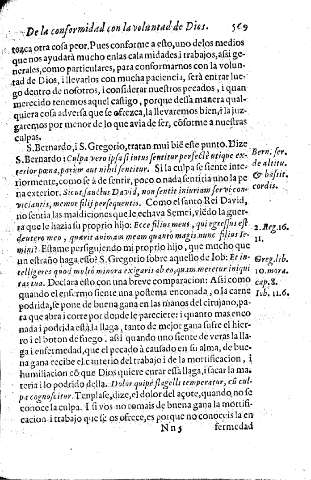 De la conformidad con la voluntad de Dios. 569
tozca otra cosa peor. Pues conforme a esto, uno delos medios
que nos ayudará mucho enlas calamidades i trabajos, assi ge-
nerales, como particulares, para conformarnos con la volun-
tad de Dios, i llevarlos con mucha paciencia, será entrar lue-
go dentro de nosotros, i considerar nuestros pecados, i quan
merecido tenemos aquel castigo, porque dessa manera qual-
quiera cosa adversa que se ofrezca, la llevaremos bien, i la juz-
garemos por menor de lo que avia de ser, cõforme a nuestras
culpas.
S. Bernardo, i S. Gregorio, tratan mui biẽ este punto. Dize
S. Bernardo: Culpa vero ipsa si intus sentitur perfectè utique ex-
terior pœna, parùm aut nihil sentitur. Si la culpa se siente inte-
riormente, como se á de sentir, poco o nada sentirá uno la pe
na exterior. Sicut, sanctus David, non sentit iniuriam servi con-
viciantis, memor filij persequentis. Como el santo Rei David,
no sentia las maldiciones que le echava Semei, viẽdo la guerra
que le hazia su proprio hijo: Ecce filius meus, qui egressus est
de utero meo, quærit animam meam quantò magis nunc filius Ie-
mini? Estame persiguiendo mi proprio hijo, que mucho que
un estraño haga esso? S. Gregorio sobre aquello de Iob: Et in-
telligeres quod multò minora exigaris ab eo, quam meretur iniqui
tas tua. Declara esto con una breve comparacion: Assi como
quando el enfermo siente una postema enconada, o la carne
podrida, se pone de buena gana en las manos del cirujano, pa-
ra que abra i corte por donde le pareciere: i quanto mas enco
nada i podrida está la llaga, tanto de mejor gana sufre el hier-
ro i el boton de fuego. assi quando uno siente de veras la lla-
ga i enfermedad, que el pecado à causado en su alma, de bue-
na gana recibe el cauterio del trabajo i de la mortificacion, i
humiliacion cõ que Dios quiere curar essa llaga, i sacar la ma-
teria i lo podrido della. Dolor quipè flagelli temperatur, cũ cul-
pa cognoscitur. Templase, dize, el dolor del açote, quando se
conoce la culpa. I si vos no tomais de buena gana la mortifi-
cacion i trabajo que se os ofrece, es porque no conoceis la en
Nn 5 fermedad
Bern. ser.
de altitu.
& bassit.
cordis.
2. Reg. 16.
11.
Greg. lib.
10. mora.
cap. 8.
Iob. 11. 6.